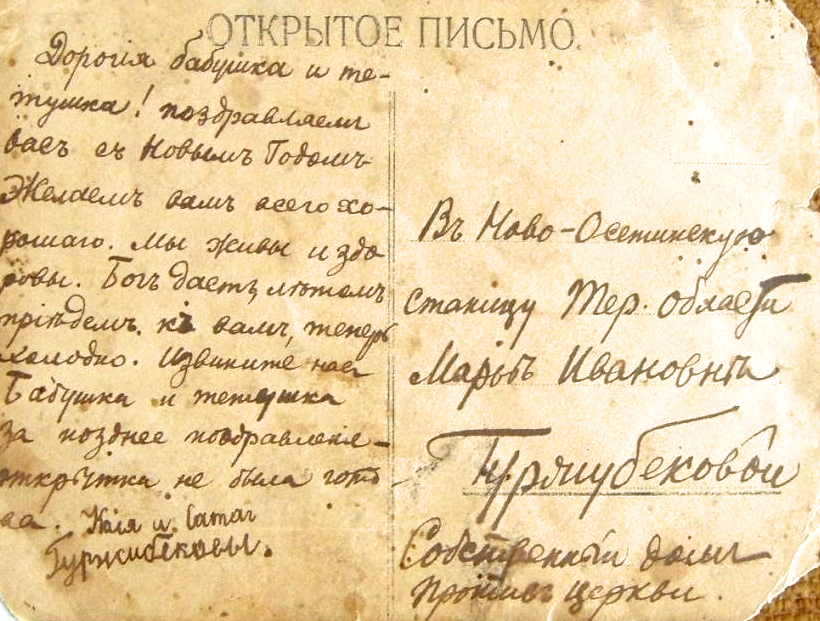 ОТКРЫТОЕ ПИСЬМО.
Дорогія бабушка и те-
тушка! поздравляемъ
васъ съ Новымъ Годомъ
Желаемъ вамъ всего хо-
рошаго. Мы живы и здо
ровы. Богъ дастъ, лѣтомъ
пріѣдемъ къ вамъ, теперь
холодно. Извините нас
Бабушка и тетушка
за позднее поздравлені-
открытка не была гото
ва. Катя и
Гуржибековы.
Въ Ново-Осетинскую
станицу Тер. области
Марьѣ Ивановнѣ
Гуржибековой
Собственный домъ
противъ церкви.